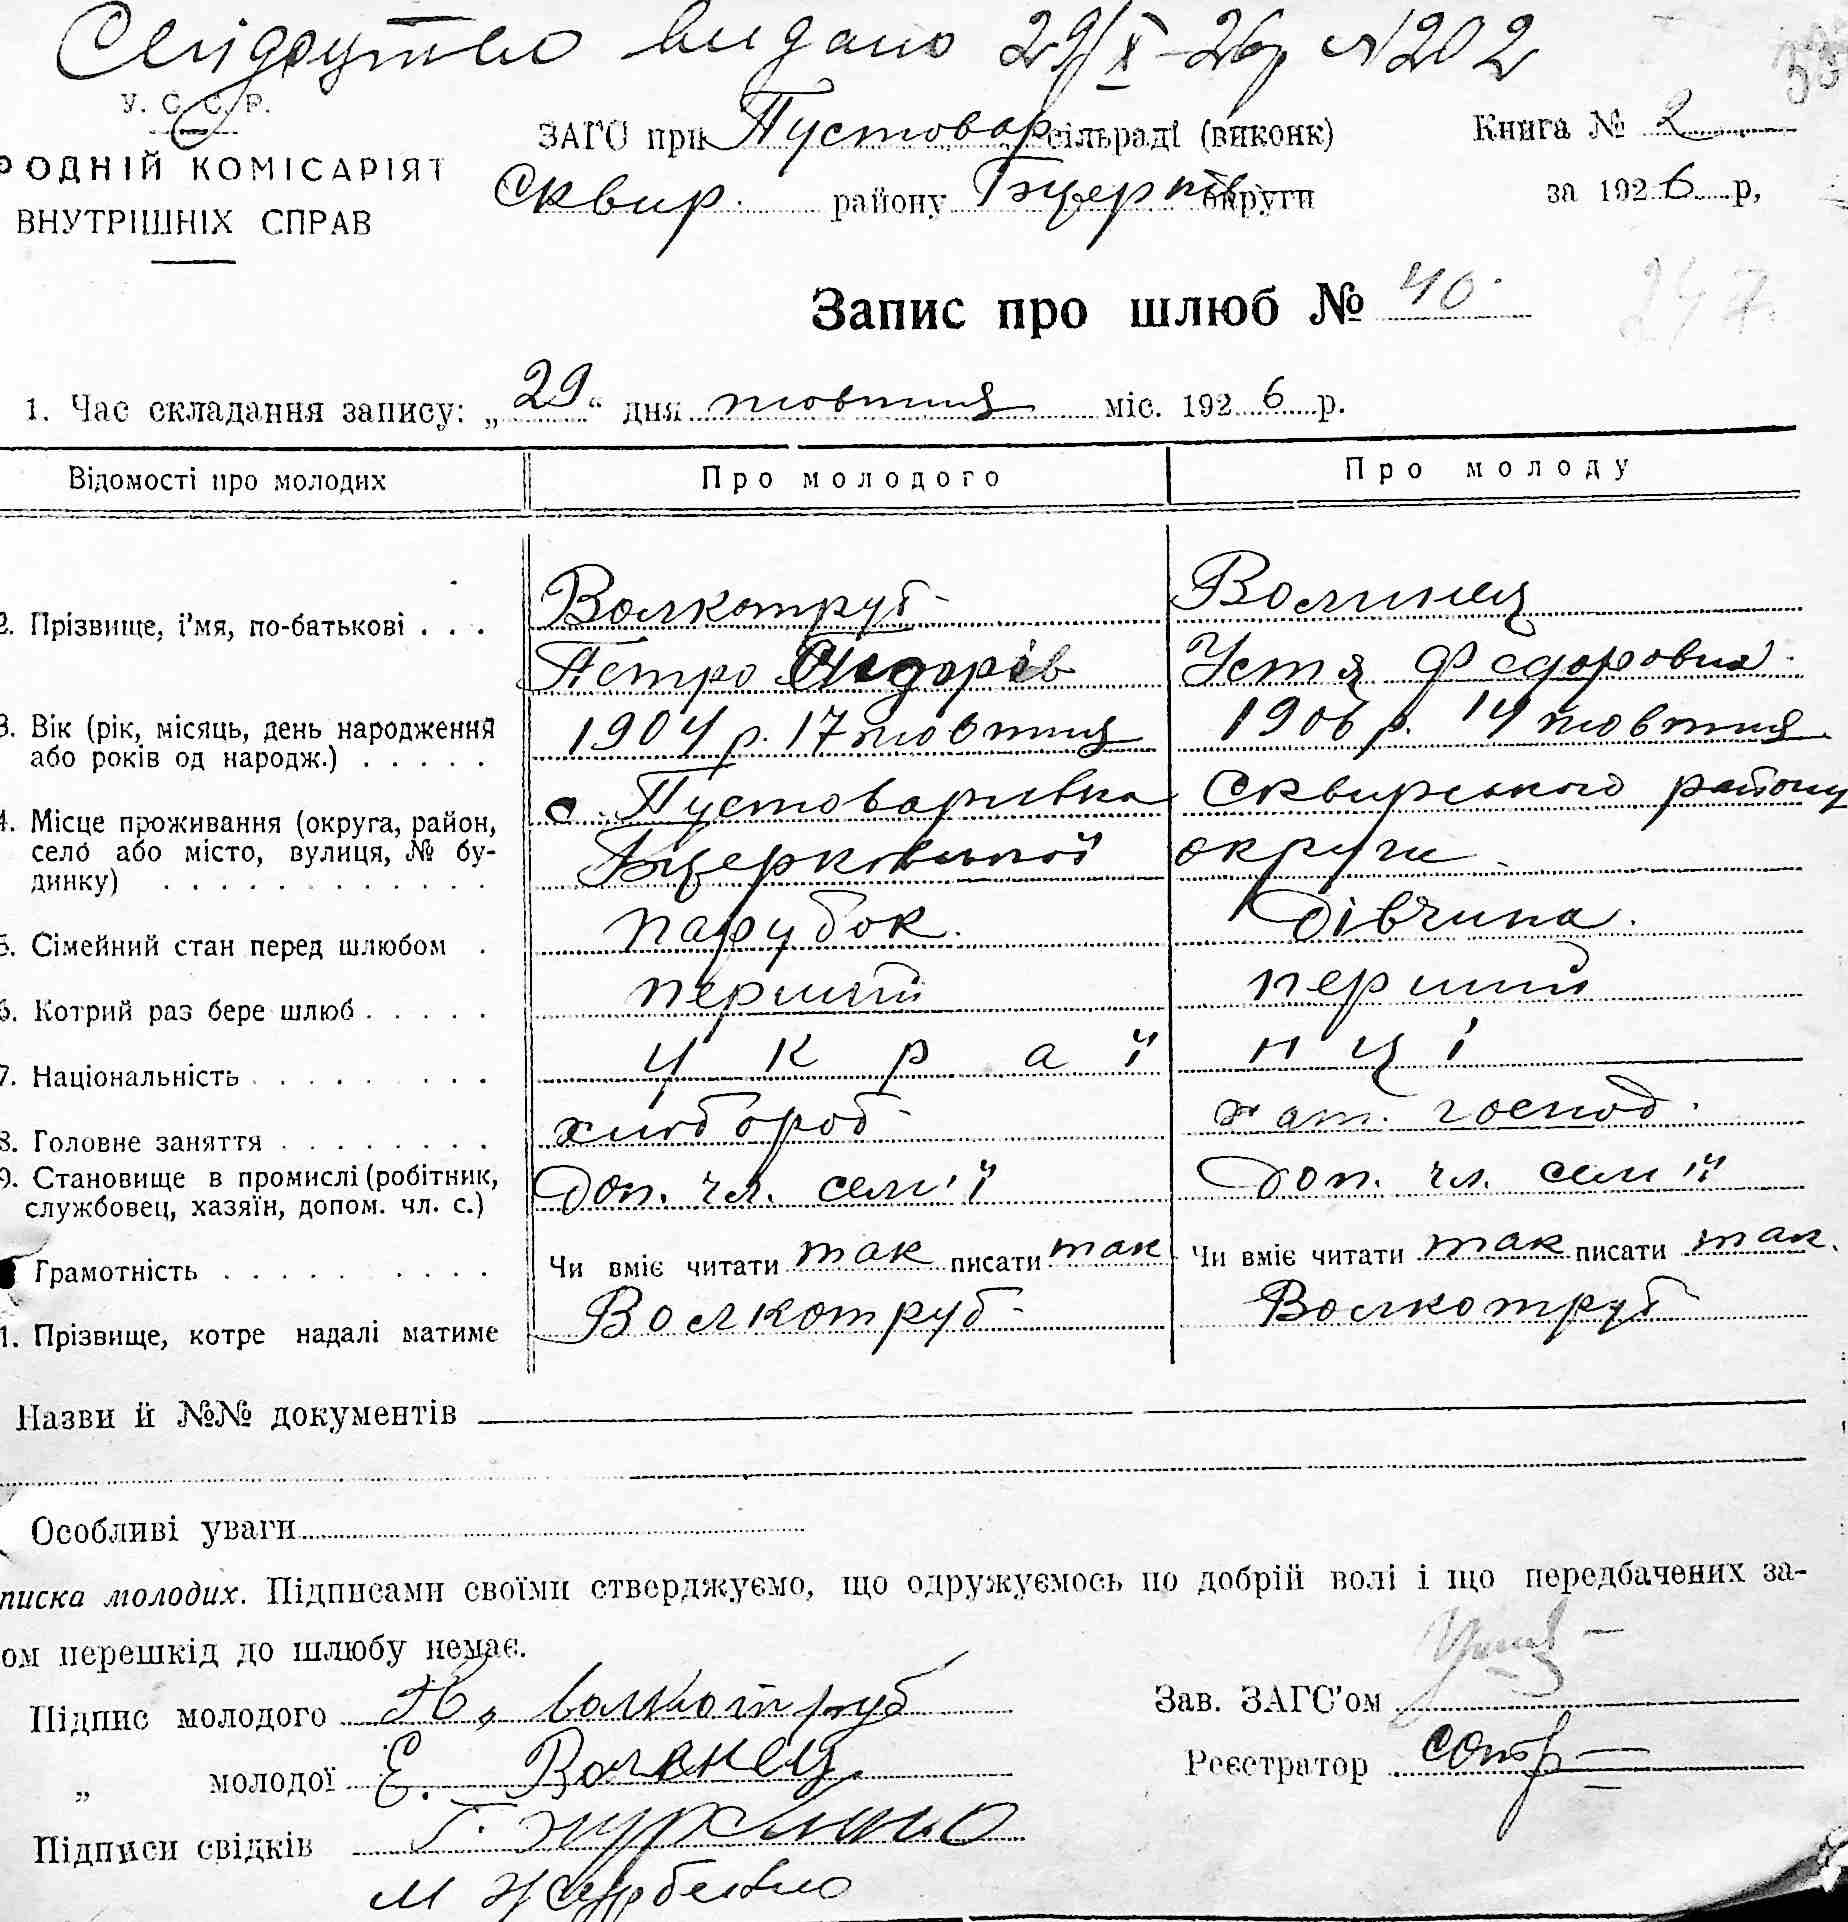 Свідоцтво видано 29/X-26р №202
У. С. С. Р.
РОДНІЙ КОМІСАРІЯТ
ВНУТРІШНІХ СПРАВ
ЗАГС при Пустовар сільраді (виконк)
Сквир. району Бцерків округи
Книга № 2
за 1926 р,
Запис про шлюб № 40.
247.
1. Час складання запису: „29“ дня жовтня міс. 1926 р.
Відомості про молодих Про молодого Про молоду
2. Прізвище, і'мя, по-батькові . . . Волкотруб Волинец
Петро Сидорів Устя Федоровна
3. Вік (рік, місяць, день народження або років од народж.) . . . . . 1904 р. 17 жовтня 1906 р. 14 жовтня
4. Місце проживання (округа, район, село або місто, вулиця, № бу-динку) . . . . . . . . . . . . с. Пустоварівка Сквирського району
Бцерківської округи
5. Сімейний стан перед шлюбом . парубок. дівчина.
6. Котрий раз бере шлюб . . . . . перший перший
7. Національність . . . . . . . . . українці
8. Головне заняття . . . . . . . . хлібороб хат. господ.
9. Становище в промислі (робітник, службовец, хазяїн, допом. чл. с.) Доп. чл. сем'ї Доп. чл. сем'ї
Грамотність . . . . . . . . . . Чи вміє читати так писати так Чи вміє читати так писати так.
1. Прізвище, котре надалі матиме Волкотруб Волкотруб
Назви й №№ документів
Особливі уваги
писка молодих. Підписами своїми стверджуємо, що одружуємось по добрій волі і що передбачених за-
ом перешкід до шлюбу немає.
Підпис молодого П. Волкотруб
Зав. ЗАГС'ом
„ молодої Е. Волинец
Реєстратор
Підписи свідків Г.
М